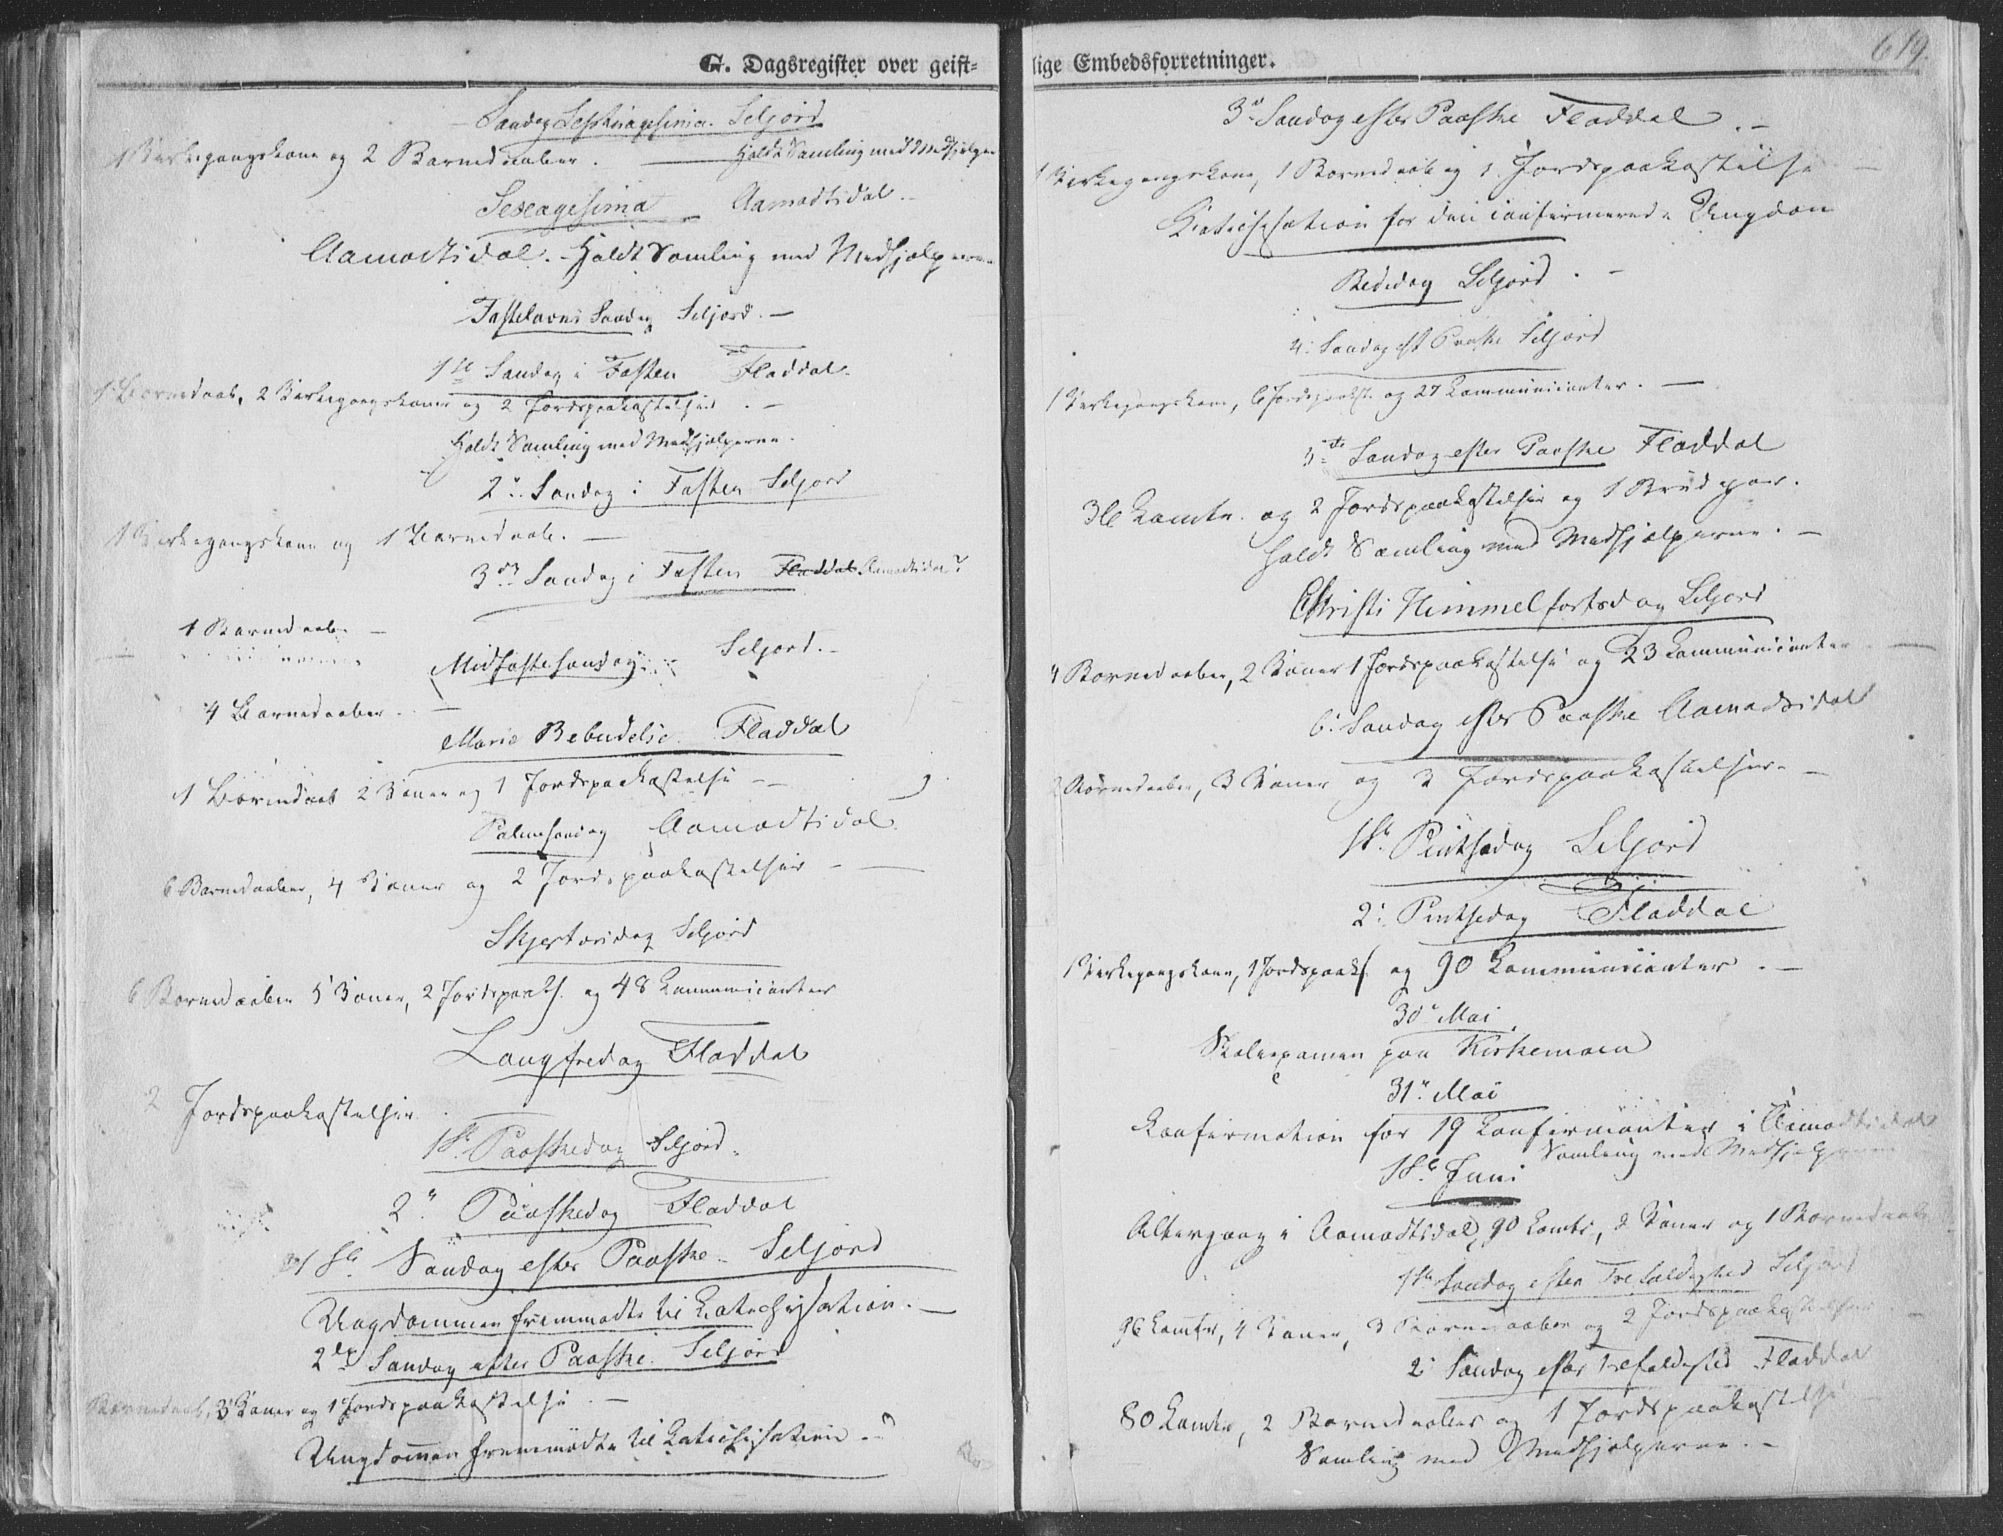 G. Dagsregister over geist-
Søndag Septuagesima. Seljord
1 Kirkegangskone og 2 Barnedaaber. — Holdt Samling med Medhjelperne
Sexagesima Aamodtsdal.
Aamodtsdal. - Holdt Samling med Medhjælperne
Fastelavns Søndag Seljord. —
1ste Søndag i Fasten Fladdal.
1 Barnedaab, 2 Kirkegangskoner og 2 Jordspaakastelser. —
Holdt Samling med Medhjælperne.
2n Søndag i Fasten Seljord
1 Kirkegangskone og 1 Barnedaab. —
3die Søndag i Fasten Fladdal Aamodtsdal
1 Barnedaab —
Midfastesøndag Seljord. -
4 Barnedaaber. —
Mariæ Bebudelse Fladdal
1 Barnedaab 2 Koner og 1 Jordspaakastelse —
Palmesøndag Aamodtsdal
6 Barnedaaber, 4 Koner og 2 Jordspaakastelser —
Skjertorsdag Seljord
6 Barnedaaber 5 Koner, 2 Jordspaak. og 48 Kommunicanter
Langfredag Fladdal
2 Jordspaakastelser
1ste Paaskedag Seljord.
2n Paaskedag Fladdal
1ste Søndag efter Paaske. Seljord
Ungdommen fremmødte til Katechisation. —
2den Søndag efter Paaske. Seljord
Barnedaab, 3 Koner og 1 Jordspaakastelse. —
Ungdommen fremmødte til Katechisation. -
lige Embedsforretninger.
619.
3die Søndag efter Paaske Fladdal. —
1 Kirkegangskone, 1 Barnedaab og 1 Jordspaakastelse —
Katechisation for den confirmerede Ungdom
Bededag Seljord. —
4. Søndag eft Paaske Seljord
1 Kirkegangskone, 6 Jordspaakst. og 27 Kommunicanter. —
5te Søndag efter Paaske Fladdal
36 Komtr. og 2 Jordspaakastelser og 1 Brudpar.
Holdt Samling med Medhjælperne. —
Christi Himmelfartsdag Seljord
4 Barnedaaber, 2 Koner 1 Jordspaakastelse og 23 Kommunicanter —
6. Søndag efter Paaske Aamodtsdal
2 Barnedaaber, 3 Koner og 3 Jordspaakastelser. —
1ste Pintsedag Seljord
2. Pintsedag Fladdal
1 Kirkegangskone, 1 Jordspaak. og 90 Kommunicanter. —
30te Mai
Skoleexamen paa Kirkemoen
31te Mai
Konfirmation for 19 Konfirmanter i Aamodtsdal
Samling med Medhjelperne
1ste Juni
Altergang i Aamodtsdal, 90 Komtr, 2 Koner og 1 Barnedaab
1ste Søndag efter Trefoldighed Seljord
96 Komtr, 4 Koner, 3 Barnedaaber og 2 Jordspaakastelser —
2. Søndag efter Trefoldighed Fladdal
80 Komtr, 2 Barnedaaber og 1 Jordspaakastelse
Samling med Medhjælperne. —